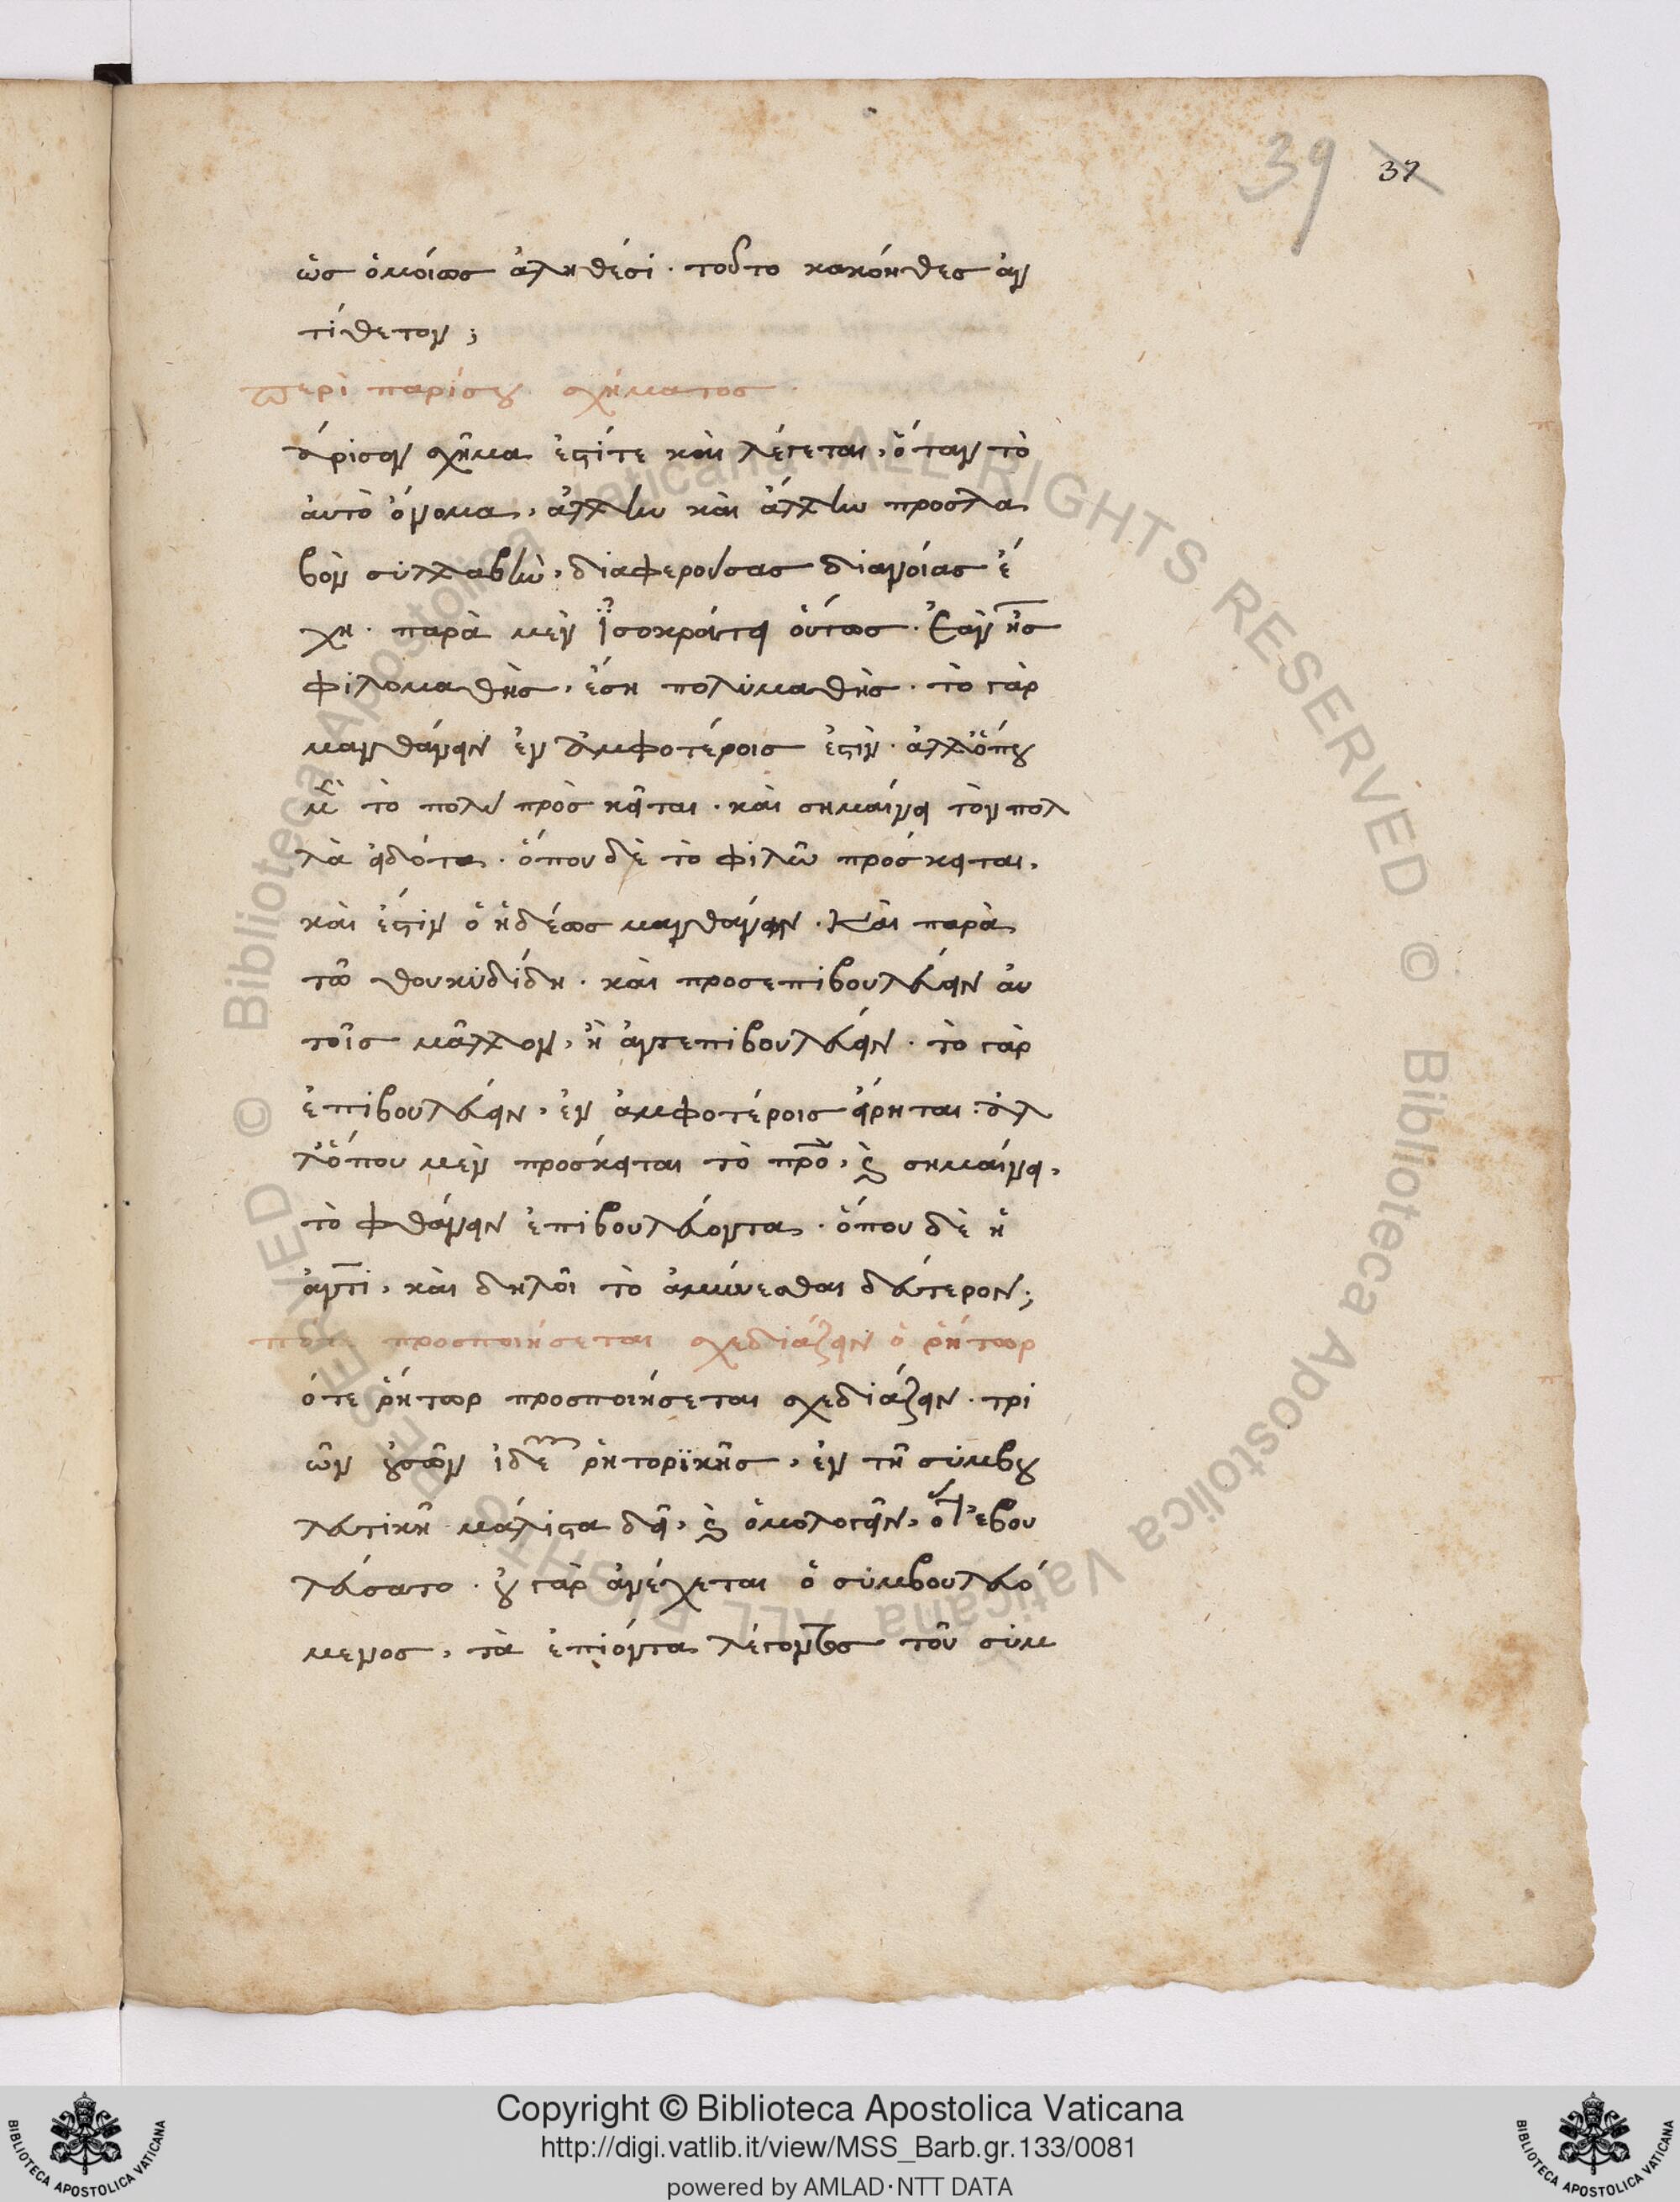 39 37
ὡς ὁμοίως ἀληθέσι· τοῦτο κακόηθες ἀν
τίθετον;
περὶ παρίσου σχήματος·
άρισον σχῆμα ἐστί τε καὶ λέγεται, ὅταν τὸ
ἀυτὸ ὄνομα, ἄλλην καὶ ἄλλην προσλα
βὸν συλλαβὴν, διαφερούσας διανοίας ἔ
χη· παρὰ μὲν Ἰσοκράτει ὅυτως· Ἐὰν ῆς
φιλομαθὴς, ἔση πολυμαθὴς· τὸ γὰρ
μανθάνειν ἐν ἀμφοτέροις ἐστὶν· ἀλλ' ὅπου
μὲν τὸ πολὺ πρὸς κεῖται· καὶ σημαίνει τὸν πολ
λὰ ειδότα· ὅπου δὲ τὸ φιλῶ πρόσκειται,
καὶ ἐστὶν ὁ ἡδέως μανθάνων· Καὶ παρὰ
τῶ θουκυδίδη· καὶ προσεπιβουλεύειν ἀυ
τοῖς μᾶλλον, ἢ ἀντεπιβουλεύειν· τὸ γὰρ
ἐπιβουλεύειν, ἐν ἀμφοτέροις ἔιρηται· ἀλ
λ' ὅπου μὲν προσκειται τὸ πρὸ, καὶ σημαίνει,
τὸ φθάνειν ἐπιβουλεύοντα· ὅπου δὲ ἡ
ἀντὶ, καὶ δηλοῖ τὸ ἀμύνεσθαι δεύτερον;
πότε προσποιήσεται σχεδιάζειν ὁ ῥήτωρ
ότε ῥήτωρ προσποιήσεται σχεδιάζειν· τρι
ῶν ουσῶν ἰδεῶν ῥητορϊκῆς, ἐν τῆ συμβου
λευτικῆ μάλιστα δεῖ, καὶ ὁμολογεῖν, ὅτι ἐβου
λεύσατο· οὐ γὰρ ἀνέχεται ὁ συμβουλευό
μενος, τὰ ἐπιόντα λέγοντος τοῦ συμ
© Biblioteca Apostolica Vaticana ALL RIGHTS RESERVED © Biblioteca Apostolica Vaticana ALL RIGHTS RESERVED
BIBLIOTECA APOSTOLICA VATICANA
Copyright © Biblioteca Apostolica Vaticana
http://digi.vatlib.it/view/MSS_Barb.gr.133/0081
powered by AMLAD·NTT DATA
BIBLIOTECA APOSTOLICA VATICANA